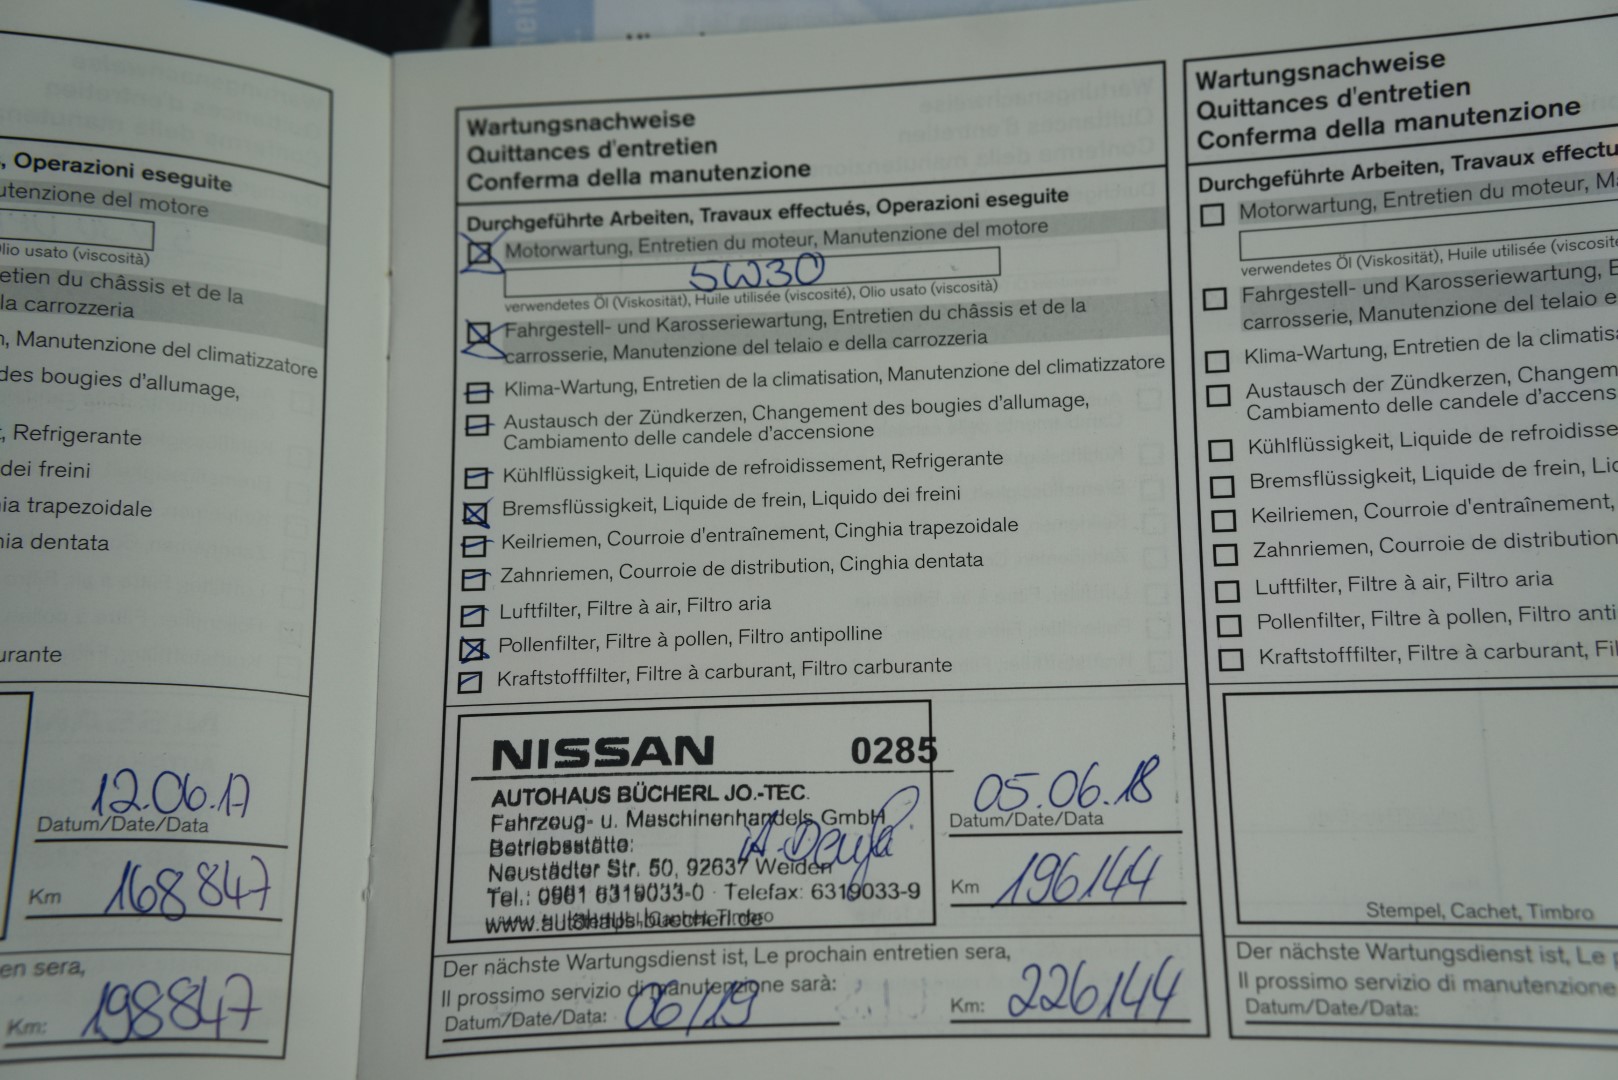 , Operazioni eseguite
utenzione del motore
lio usato (viscosità)
etien du châssis et de la
la carrozzeria
, Manutenzione del climatizzatore
des bougies d'allumage,
, Refrigerante
dei freini
ia trapezoidale
ia dentata
urante
12.06.17
Datum/Date/Data
Km 168847
en sera,
Km: 198847
Wartungsnachweise
Quittances d'entretien
Conferma della manutenzione
Durchgeführte Arbeiten, Travaux effectués, Operazioni eseguite
Motorwartung, Entretien du moteur, Manutenzione del motore
5W30
verwendetes Öl (Viskosität), Huile utilisée (viscosité), Olio usato (viscosità)
Fahrgestell- und Karosseriewartung, Entretien du châssis et de la
carrosserie, Manutenzione del telaio e della carrozzeria
Klima-Wartung, Entretien de la climatisation, Manutenzione del climatizzatore
Austausch der Zündkerzen, Changement des bougies d'allumage,
Cambiamento delle candele d'accensione
Kühlflüssigkeit, Liquide de refroidissement, Refrigerante
Bremsflüssigkeit, Liquide de frein, Liquido dei freini
Keilriemen, Courroie d'entraînement, Cinghia trapezoidale
Zahnriemen, Courroie de distribution, Cinghia dentata
Luftfilter, Filtre à air, Filtro aria
Pollenfilter, Filtre à pollen, Filtro antipolline
Kraftstofffilter, Filtre à carburant, Filtro carburante
NISSAN 0285
AUTOHAUS BÜCHERL JO.-TEC.
Fahrzeug- u. Maschinenhandels GmbH
Betriebsstätte:
Neustädter Str. 50, 92637 Weiden
Tel.: 0961 6319033-0 · Telefax: 6319033-9
www.autohaus-buecherl.de
05.06.18
Datum/Date/Data
Km 196144
Der nächste Wartungsdienst ist, Le prochain entretien sera,
Il prossimo servizio di manutenzione sarà:
Datum/Date/Data: 06/19
Km: 226144
Wartungsnachweise
Quittances d'entretien
Conferma della manutenzione
Durchgeführte Arbeiten, Travaux effectu
Motorwartung, Entretien du moteur, M
verwendetes Öl (Viskosität), Huile utilisée (viscosit
Fahrgestell- und Karosseriewartung, E
carrosserie, Manutenzione del telaio e
Klima-Wartung, Entretien de la climatis
Austausch der Zündkerzen, Changem
Cambiamento delle candele d'accens
Kühlflüssigkeit, Liquide de refroidisse
Bremsflüssigkeit, Liquide de frein, Li
Keilriemen, Courroie d'entraînement,
Zahnriemen, Courroie de distribution
Luftfilter, Filtre à air, Filtro aria
Pollenfilter, Filtre à pollen, Filtro anti
Kraftstofffilter, Filtre à carburant, Fil
Stempel, Cachet, Timbro
Der nächste Wartungsdienst ist, Le p
Il prossimo servizio di manutenzione
Datum/Date/Data: